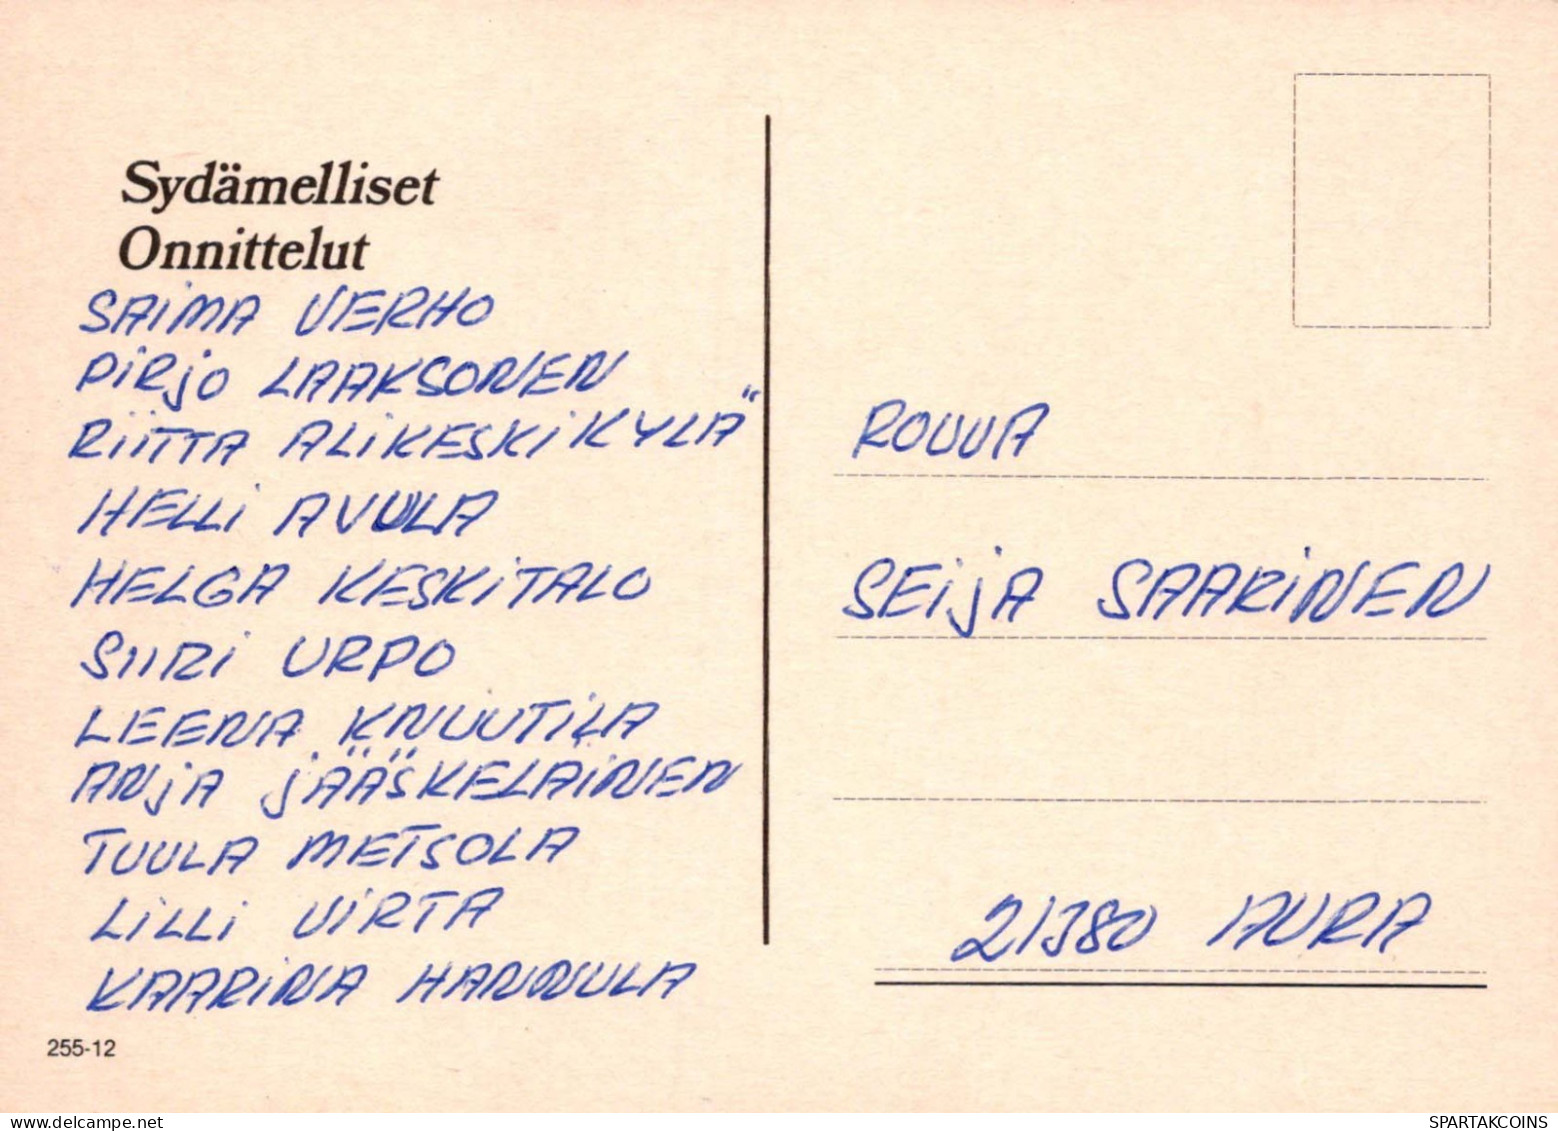 Sydämelliset
Onnittelut
SAIMA VERHO
PIRJO LAAKSONEN
RIITTA ALIKESKIKYLÄ
HELLI AVULA
HELGA KESKITALO
SIIRI URPO
LEENA KNUUTILA
ANJA JÄÄSKELÄINEN
TUULA METSOLA
LILLI VIRTA
KAARINA HANNULA
255-12
ROUVA
SEIJA SAARINEN
21380 AURA
www.delcampe.net
SPARTAKCOINS